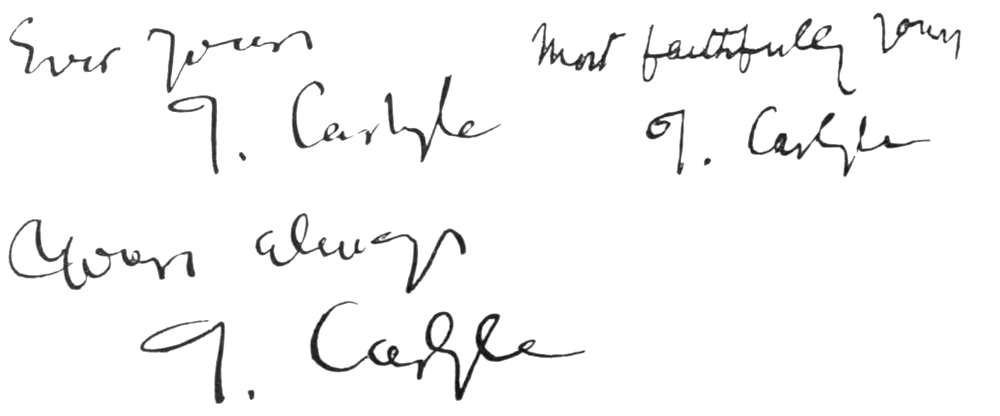 Ever yours
T. Carlyle
Most faithfully yours
T. Carlyle
Yours always
T. Carlyle